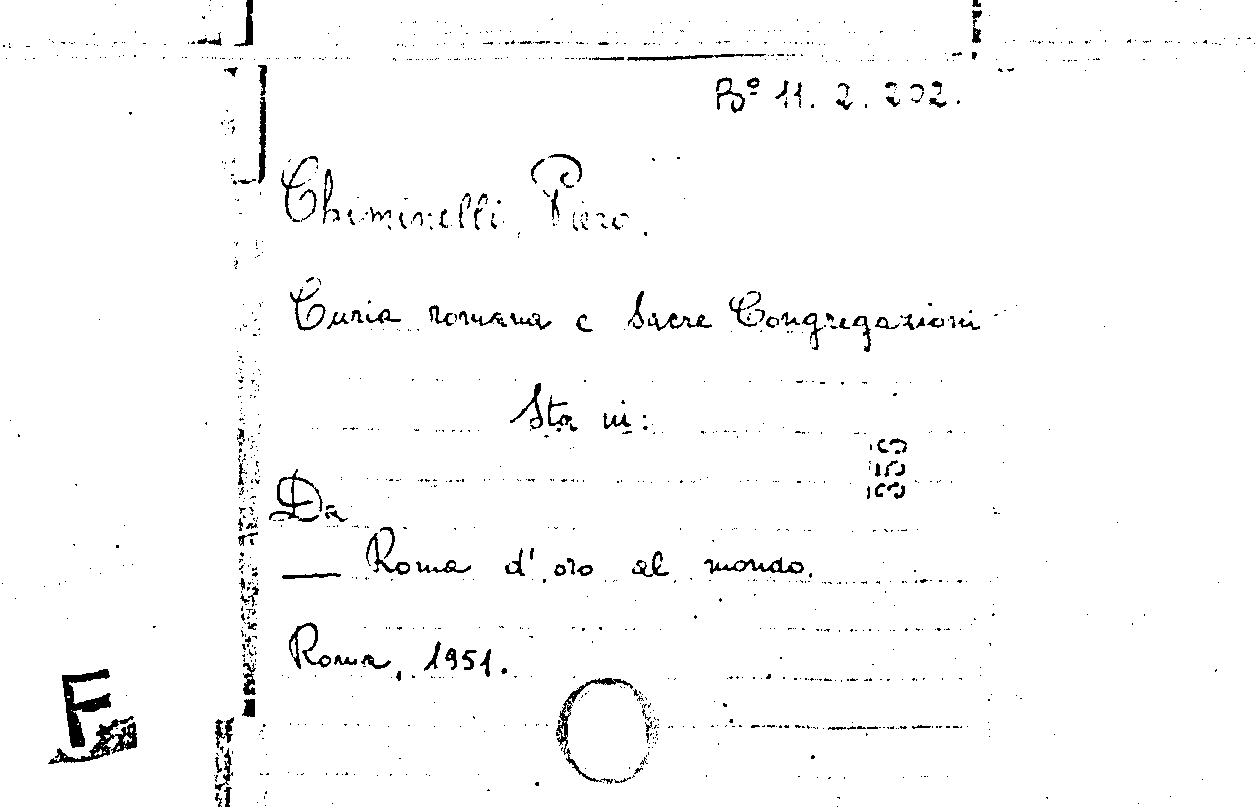 Bº 11. 2. 202.
Chiminelli, Piero.
Curia romana e Sacre Congregazioni
Sta in:
Da
— Roma d'oro al mondo.
Roma, 1951.
F